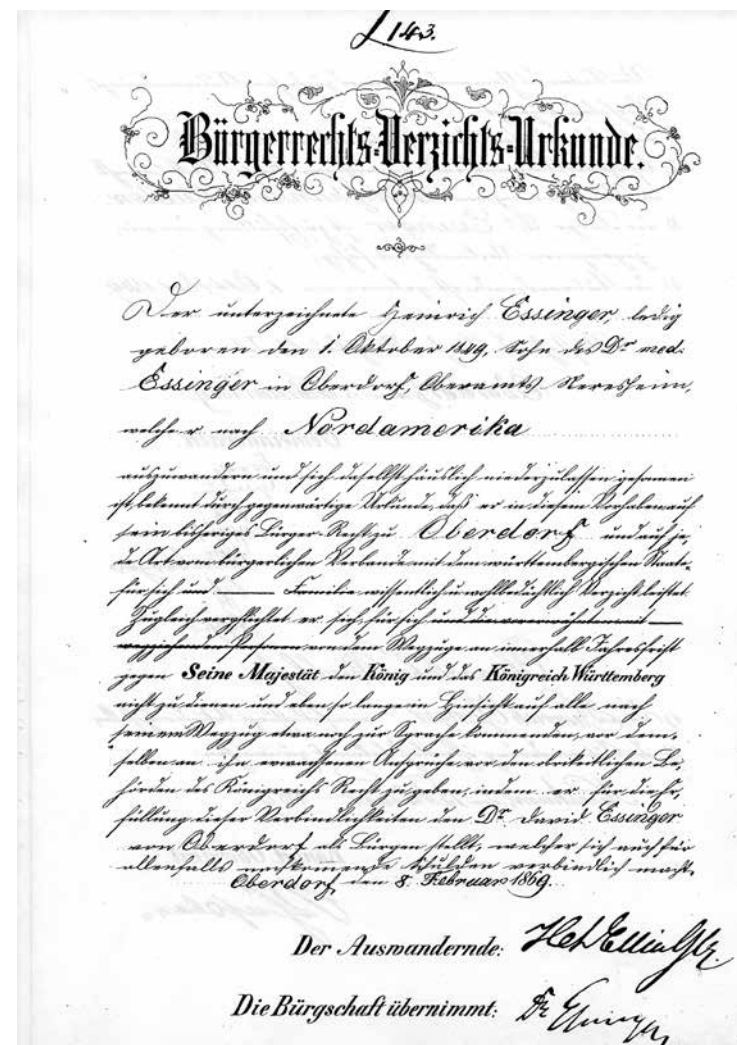 143.
Bürgerrechts-Verzichts-Urkunde.
Der unterzeichnete Heinrich Essinger, ledig
geboren den 1. Oktober 1849, Sohn des Dr med.
Essinger in Oberdorf, Oberamts Neresheim,
welcher nach Nordamerika
auszuwandern und sich daselbst häuslich niederzulassen gesonnen
ist, bekennt durch gegenwärtige Urkunde, daß er in diesem Vorhaben auf
sein bisheriges Bürger-Recht zu Oberdorf und auf je-
de Art vom bürgerlichen Verbande mit dem württembergischen Staate
für sich und — Familie wissentlich u. wohlbedächtlich Verzicht leistet.
Zugleich verpflichtet er sich, für sich und die vorerwähnten mit —
wegziehenden Personen von dem Wegzuge an innerhalb Jahresfrist
gegen Seine Majestät den König und das Königreich Württemberg
nicht zu dienen und eben so lange in Hinsicht auf alle nach
seinem Wegzug etwa noch zur Sprache kommenden, vor dem-
selben an ihn erwachsenen Ansprüche vor den obrigkeitlichen Be-
hörden des Königreichs Recht zu geben, indem er für die Er-
füllung dieser Verbindlichkeiten den Dr. David Essinger
von Oberdorf als Bürgen stellt, welcher sich auch für
allenfalls nachkomende Schulden verbindlich macht.
Oberdorf, den 8. Februar 1869.
Der Auswandernde:
Die Bürgschaft übernimmt: Dr Essinger